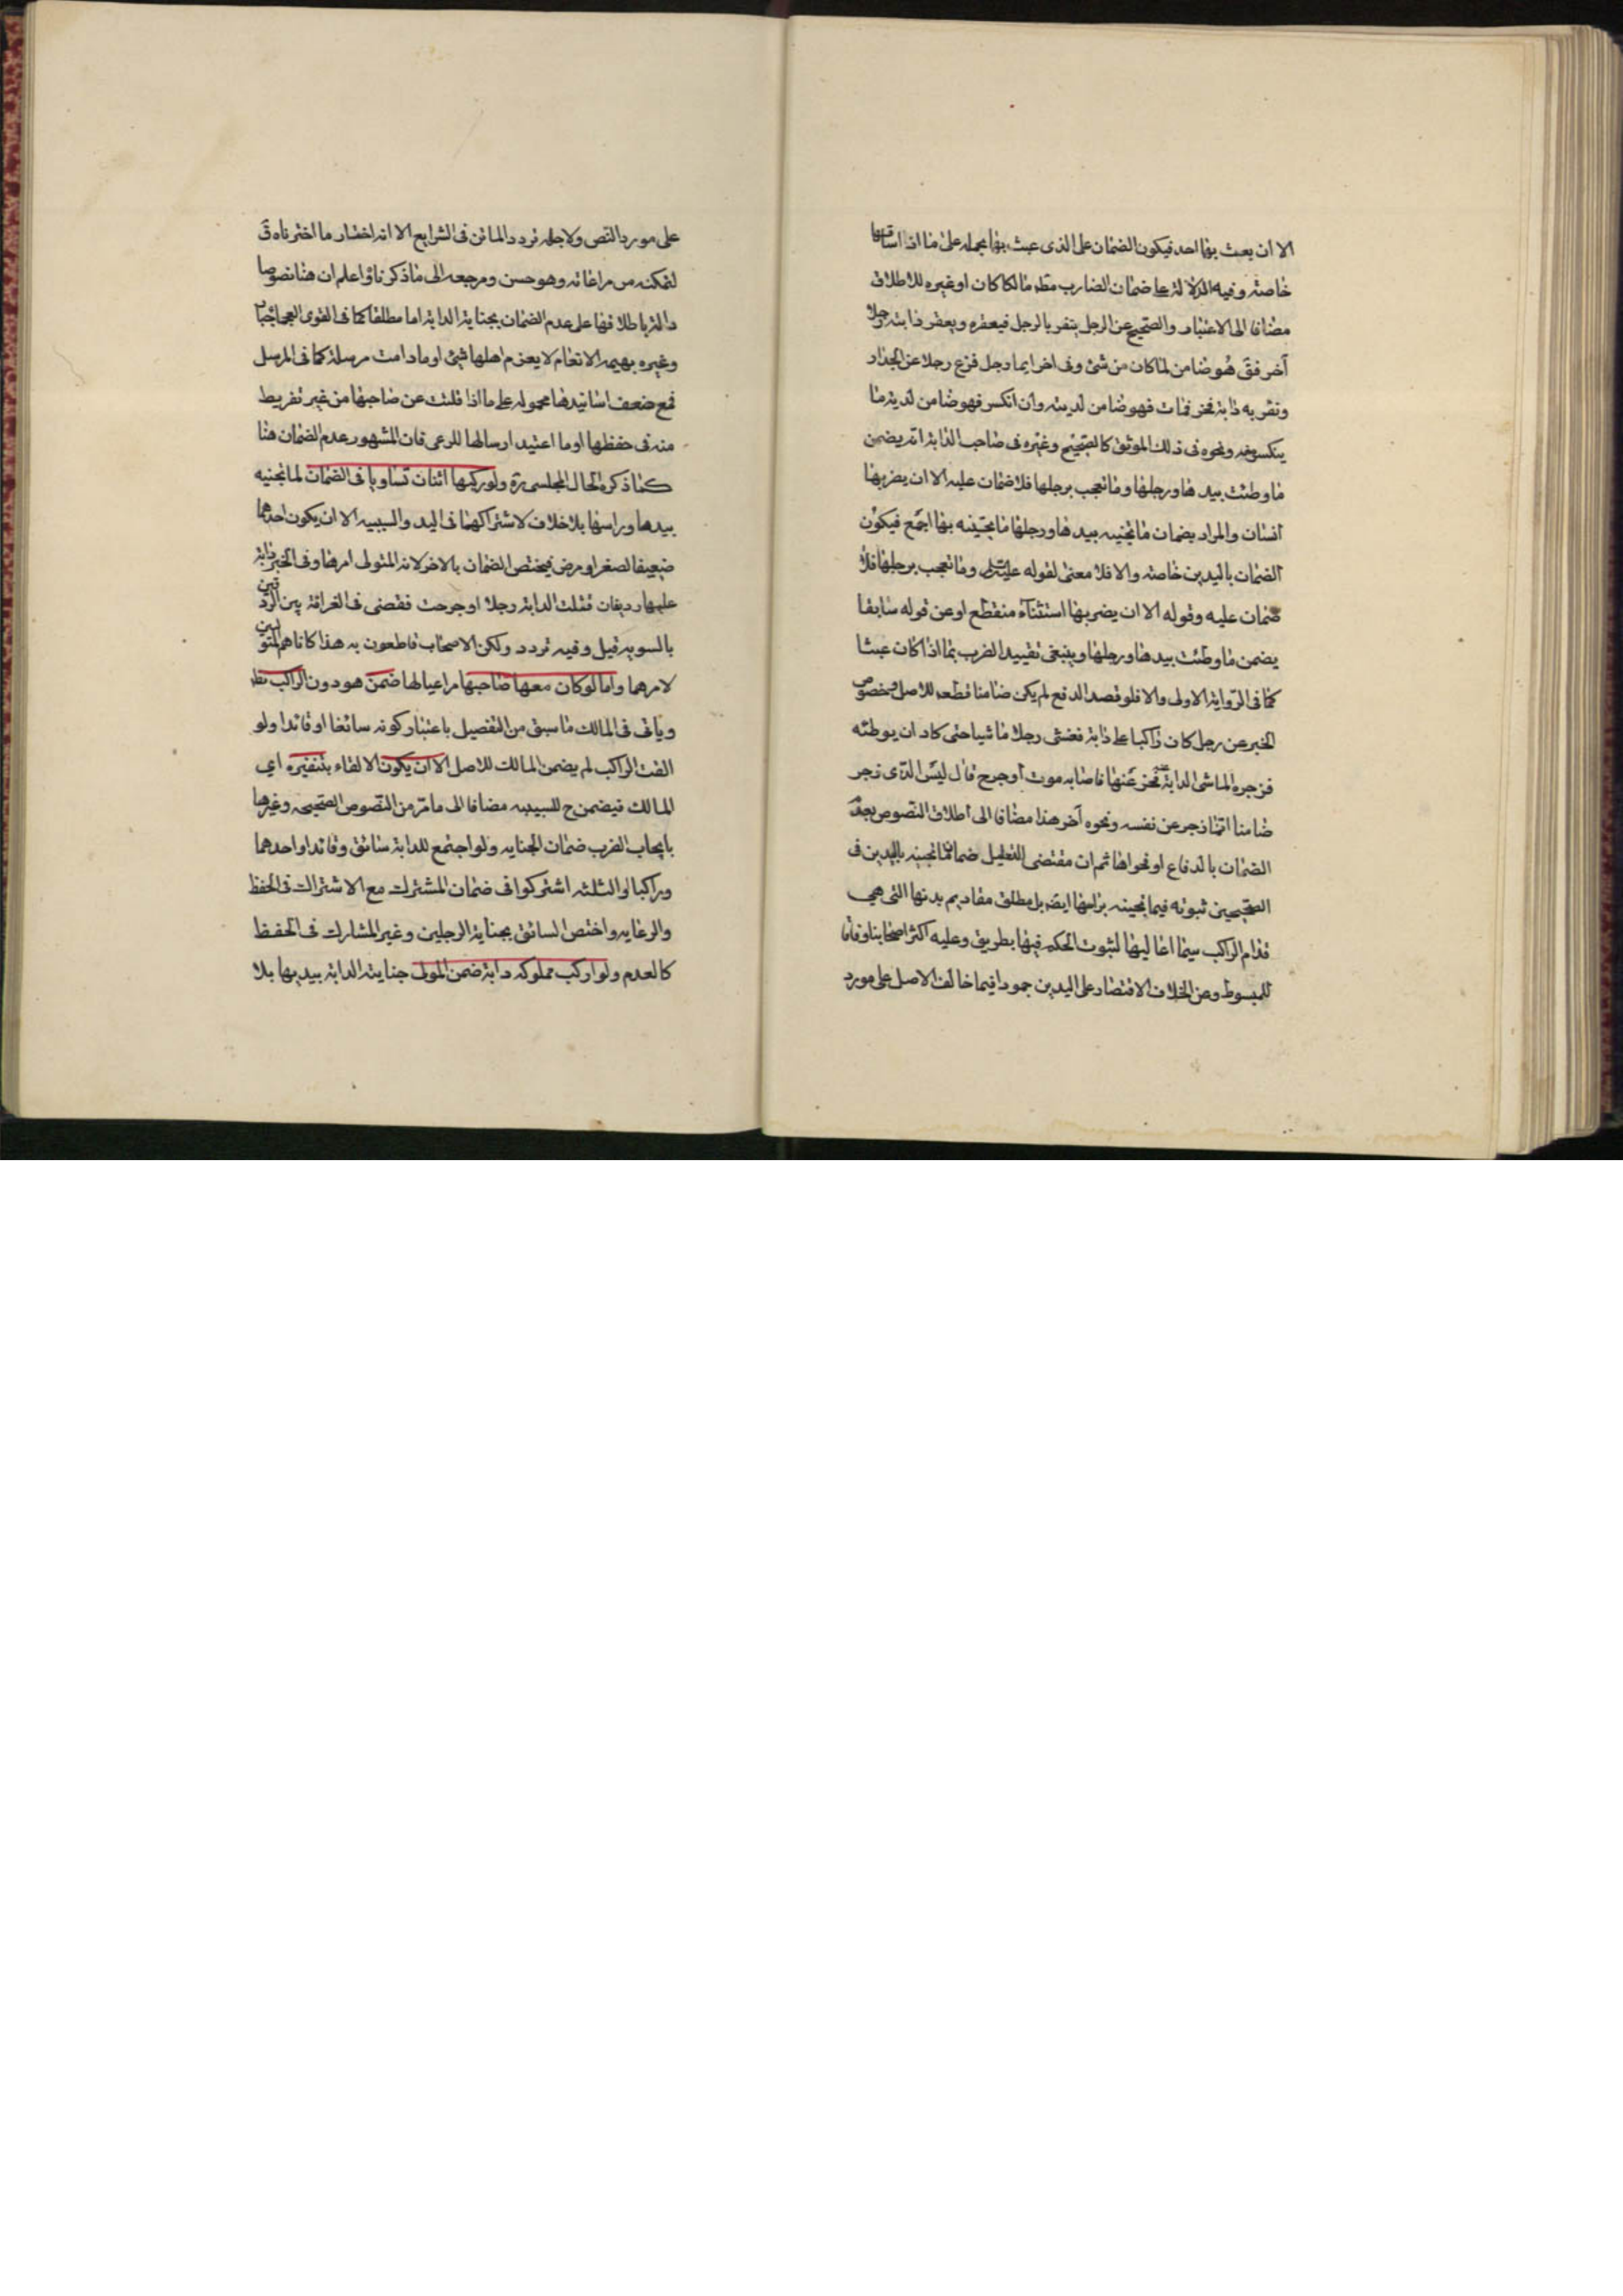 الا ان يعبث بها احد فيكون الضمان على الذى عبث بها بحمله على ما اذا ساقها
خاصة وفيه الدلالة على ضمان الضارب مطم مالكا كان او غيره للاطلاق
مضافا الى الاعتبار والصحيح عن الرجل ينفر بالرجل فيعقره ويعقر دابته رجلا
آخر فق هو ضامن لما كان من شئ وفى اخر ايما رجل فزع رجلا عن الجدار
ونفر به دابة فخر فمات فهو ضامن لديته وان انكسر فهو ضامن لدية ما
ينكسر منه ونحوه فى ذلك الموثق كالصحيح وغيره فى صاحب الدابة انه يضمن
ما وطئت بيدها ورجلها وما نعجب برجلها فلا ضمان عليه الا ان يضربها
انسان والمراد بضمان ما تجنيه بيدها ورجلها ما تجنيه بها اجمع فيكون
الضمان باليدين خاصة والا فلا معنى لقوله عليه السلم وما نعجب برجلها فلا
ضمان عليه وقوله الا ان يضربها استثناء منقطع او عن قوله سابقا
يضمن ما وطئت بيدها ورجلها وينبغى تقييد الضرب بما اذا كان عبثا
كما فى الرواية الاولى والا فلو قصد الدفع لم يكن ضامنا قطعا للاصل وخصوص
الخبر عن رجل كان راكبا على دابة فغشى رجلا ماشيا حتى كاد ان يوطئه
فزجره الماشى الدابة عنه فخر عنها فاصابه موت او جرح قال ليس الذى زجر
ضامنا انما زجر عن نفسه ونحوه آخر هذا مضافا الى اطلاق النصوص بعدم
الضمان بالدفاع او فحواها ثم ان مقتضى التعليل ضمان ما تجنيه باليدين فى
الصحيحين ثبوته فيما تجنيه براسها ايضا بل مطلق مقاديم بدنها التى هى
قدام الراكب سيما اعاليها لثبوت الحكم فيها بطريق وعليه اكثر اصحابنا وفاقا
للمبسوط وعن الخلاف الاقتصار على اليدين جمودا فيما خالف الاصل على مورد
على مورد النص ولاجله تردد الماتن فى الشرايع الا انه اختار ما اخترناه ق
لتمكنه من مراعاته وهو حسن ومرجعه الى ما ذكرنا واعلم ان هنا نصوصا
دالة باطلاقها على عدم الضمان بجناية الدابة اما مطلقا كما فى القوى العجماء جبار
وغيره بهيمة الانعام لا يغرم اهلها شئ او ما دامت مرسلة كما فى المرسل
فمع ضعف اسانيدها محموله على ما اذا فلتت عن صاحبها من غير تفريط
منه فى حفظها او ما اعتيد ارسالها للرعى فان المشهور عدم الضمان هنا
كما ذكره الخال المجلسى ره ولو ركبها اثنان تساويا فى الضمان لما تجنيه
بيدها وراسها بلا خلاف لاشتراكهما فى اليد والسببيه الا ان يكون احدهما
ضعيفا لصغر او مرض فيختص الضمان بالاخر لانه المتولى امرها وفى الخبر دابة
عليها رديفان قتلت الدابة رجلا او جرحت فقضى فى الغرامة بين الردفين
بالسويه قيل وفيه تردد ولكن الاصحاب قاطعون به هذا كانا هم المتولين
لامرهما واما لو كان معها صاحبها مراعيا لها ضمن هو دون الراكب نظر
وياتى فى المالك ما سبق من التفصيل باعتبار كونه سائقا او قائدا ولو
القت الراكب لم يضمن المالك للاصل الا ان يكون الالقاء بتنفيره اى
المالك فيضمن ح للسببيه مضافا الى ما مر من النصوص الصحيحه وغيرها
بايجاب الضرب ضمان الجنايه ولو اجتمع للدابة سائق وقائد او احدهما
وراكب او الثلثه اشتركوا فى ضمان المشترك مع الاشتراك فى الحفظ
والرعايه واختص السائق بجناية الرجلين وغير المشارك فى الحفظ
كالعدم ولو اركب مملوكه دابة ضمن المولى جناية الدابة بيديها بلا